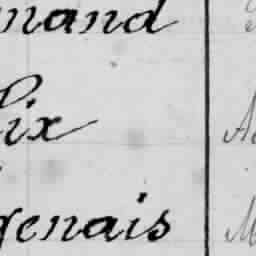 mand
lix
genais